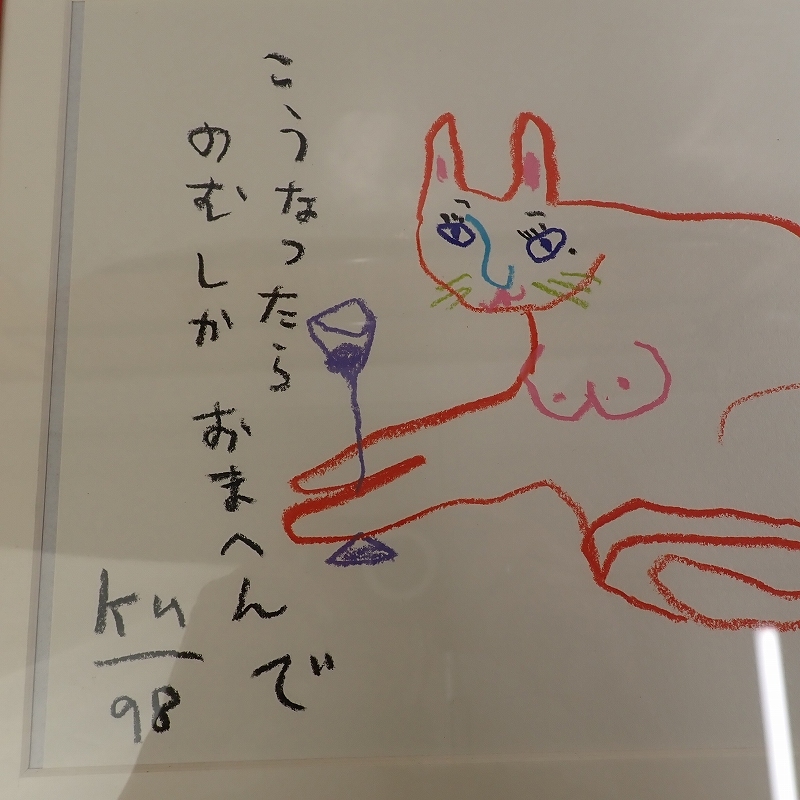 こうなったら
のむしか おまへんで
Ku
98